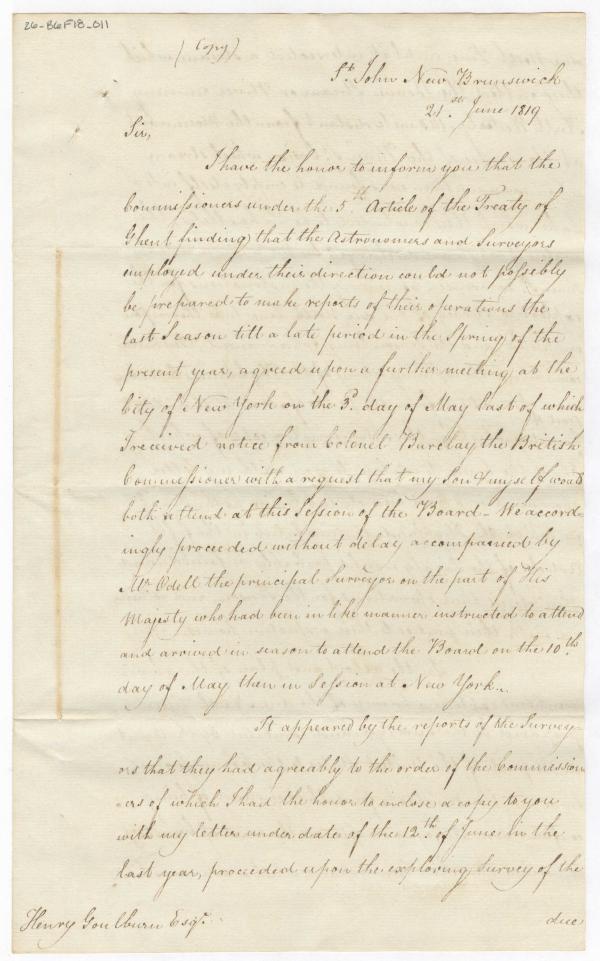 26-B6F18-011
(Copy)
St. John New Brunswick
21st June 1819
Sir,
I have the honor to inform you that the
Commissioners under the 5th Article of the Treaty of
Ghent finding that the Astronomers and Surveyors
employed under their direction could not possibly
be prepared to make reports of their operations the
last Season till a late period in the Spring of the
present year, agreed upon a further meeting at the
City of New York on the 3d. day of May last of which
I received notice from Colonel Barclay the British
Commissioner with a request that my Son & myself would
both attend at this Session of the Board - We accord-
ingly proceeded without delay accompanied by
Mr. Odell the principal Surveyor on the part of His
Majesty who had been in like manner instructed to attend
and arrived in season to attend the Board on the 10th
day of May then in Session at New York..
It appeared by the reports of the Survey-
ors that they had agreeably to the order of the Commission
ers of which I had the honor to inclose a copy to you
with my letter under date of the 12th of June in the
last year, proceeded upon the exploring Survey of the
Henry Goulburn Esqr. due